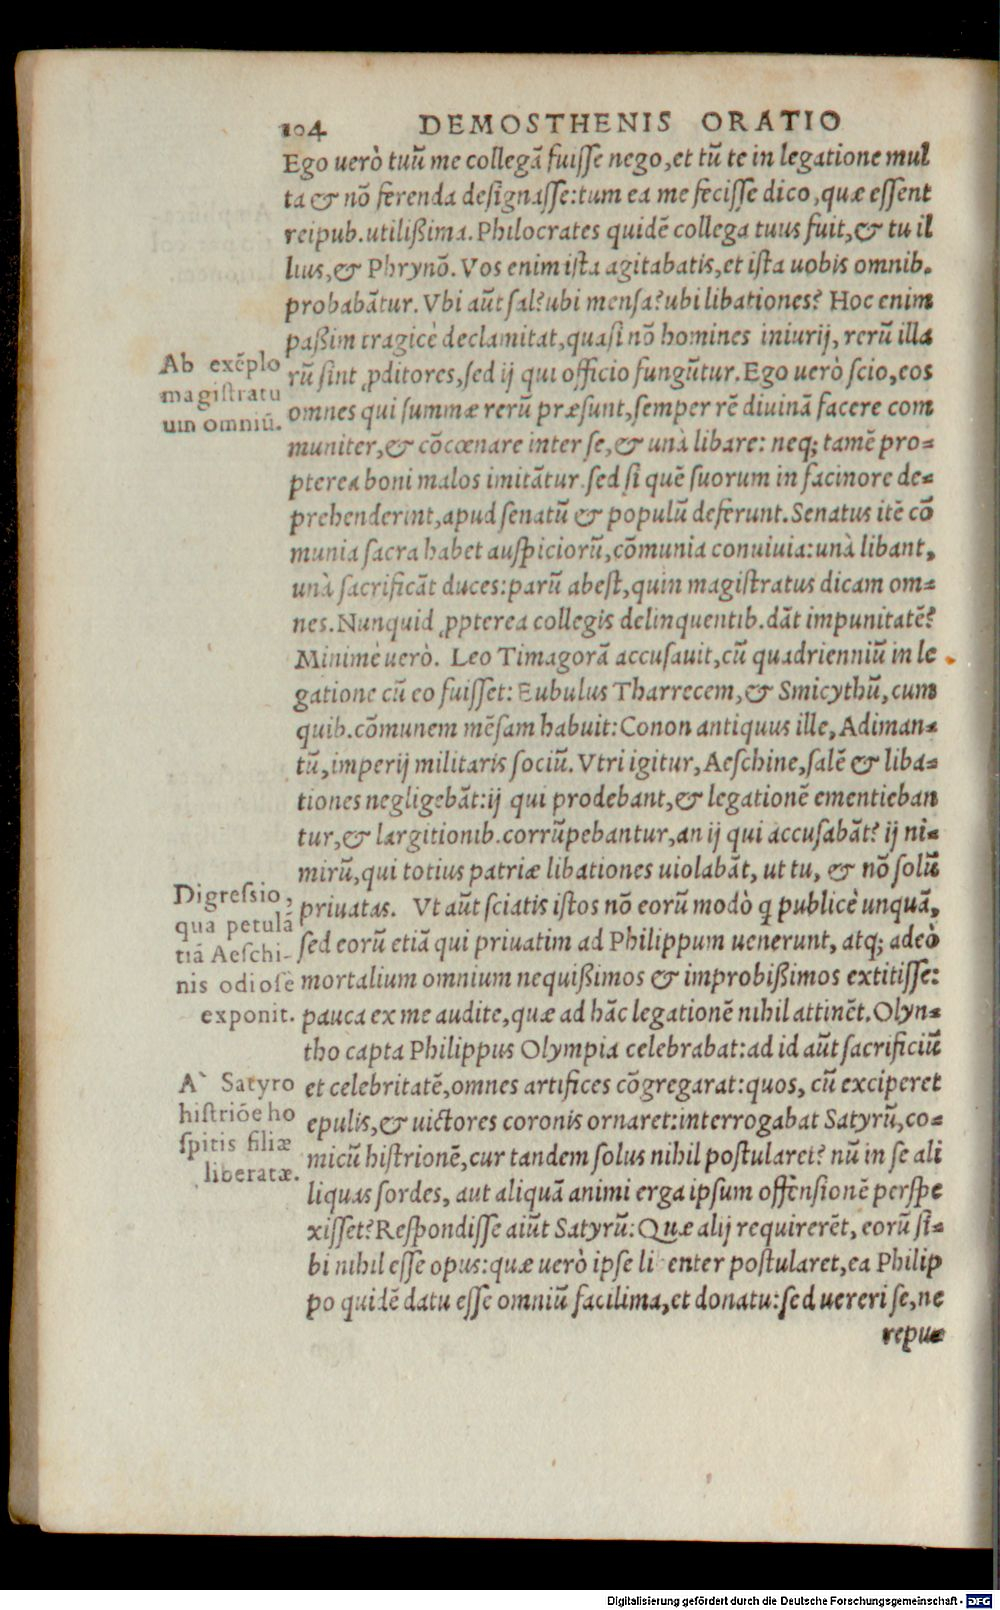 104 DEMOSTHENIS ORATIO
Ego uerò tuũ me collegã fuisse nego, et tũ te in legatione mul
ta & nõ ferenda designasse: tum ea me fecisse dico, quæ essent
reipub. utilißima. Philocrates quidẽ collega tuus fuit, & tu il
lius, & Phrynõ. Vos enim ista agitabatis, et ista uobis omnib.
probabãtur. Vbi aũt sal? ubi mensa? ubi libationes? Hoc enim
paßim tragicè declamitat, quasi nõ homines iniurij, rerũ illa
rũ sint ꝓditores, sed ij qui officio fungũtur. Ego uerò scio, eos
omnes qui summæ rerũ præsunt, semper rẽ diuinã facere com
muniter, & cõcœnare inter se, & unà libare: neq; tamẽ pro=
pterea boni malos imitãtur. sed si quẽ suorum in facinore de=
prehenderint, apud senatũ & populũ deferunt. Senatus itẽ cõ
munia sacra habet auspiciorũ, cõmunia conuiuia: unà libant,
unà sacrificãt duces: parũ abest, quin magistratus dicam om=
nes. Nunquid ꝓpterea collegis delinquentib. dãt impunitatẽ?
Minimè uerò. Leo Timagorã accusauit, cũ quadrienniũ in le
gatione cũ eo fuisset: Eubulus Tharrecem, & Smicythũ, cum
quib. cõmunem mẽsam habuit: Conon antiquus ille, Adiman=
tũ, imperij militaris sociũ. Vtri igitur, Aeschine, salẽ & liba=
tiones negligebãt: ij qui prodebant, & legationẽ ementieban
tur, & largitionib. corrũpebantur, an ij qui accusabãt? ij ni=
mirũ, qui totius patriæ libationes uiolabãt, ut tu, & nõ solũ
priuatas. Vt aũt sciatis istos nõ eorũ modò q publicè unquã,
sed eorũ etiã qui priuatim ad Philippum uenerunt, atq; adeò
mortalium omnium nequißimos & improbißimos extitisse:
pauca ex me audite, quæ ad hãc legationẽ nihil attinẽt. Olyn=
tho capta Philippus Olympia celebrabat: ad id aũt sacrificiũ
et celebritatẽ, omnes artifices cõgregarat: quos, cũ exciperet
epulis, & uictores coronis ornaret: interrogabat Satyrũ, co=
micũ histrionẽ, cur tandem solus nihil postularet? nũ in se ali
liquas sordes, aut aliquã animi erga ipsum offensionẽ perspe
xisset? Respondisse aiũt Satyrũ: Quæ alij requirerẽt, eorũ si=
bi nihil esse opus: quæ uerò ipse li enter postularet, ea Philip
po quidẽ datu esse omniũ facilima, et donatu: sed uereri se, ne
repu=
Ab exẽplo
magistratu
um omniũ.
Digressio,
qua petulã
tiã Aeschi-
nis odiosè
exponit.
A` Satyro
histriõe ho
spitis filiæ
liberatæ.
Digitalisierung gefördert durch die Deutsche Forschungsgemeinschaft - DFG